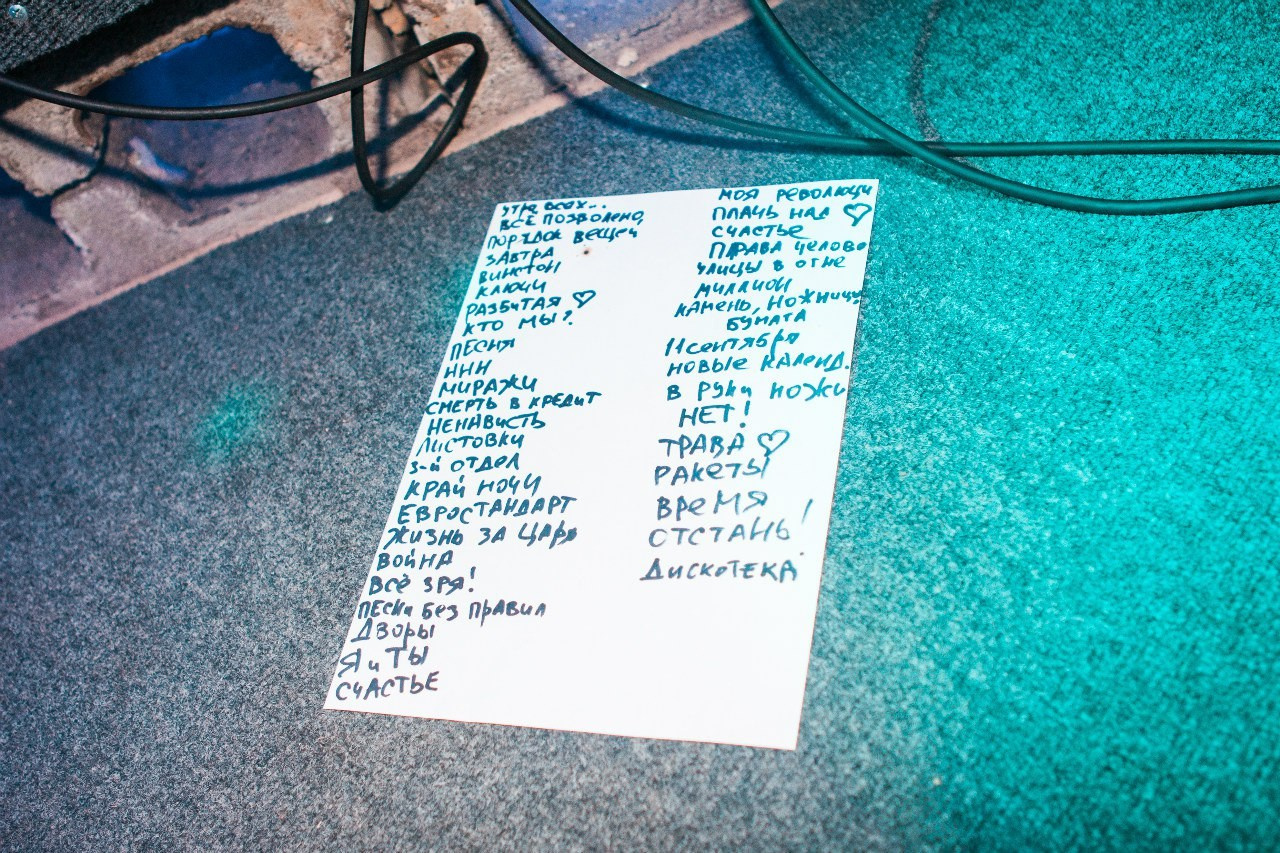 УТРО ВСЕХ...
ВСЁ ПОЗВОЛЕНО
ПОРЯДОК ВЕЩЕЙ
ЗАВТРА
ВИНСТОН
КЛЮЧИ
РАЗБИТАЯ ♡
КТО МЫ?
ПЕСНЯ
ННН
МИРАЖИ
СМЕРТЬ В КРЕДИТ
НЕНАВИСТЬ
ЛИСТОВКИ
3-й ОТДЕЛ
КРАЙ НОЧИ
ЕВРОСТАНДАРТ
ЖИЗНЬ ЗА ЦАРЯ
ВОЙНА
ВСЁ ЗРЯ!
ПЕСНИ БЕЗ ПРАВИЛ
ДВОРЫ
Я и ТЫ
СЧАСТЬЕ
МОЯ РЕВОЛЮЦИ
ПЛАЧЬ НАД ♡
СЧАСТЬЕ
ПРАВА ЧЕЛОВЕ
УЛИЦЫ В ОГНЕ
МИЛЛИОН
КАМЕНЬ, НОЖНИЦЫ
БУМАГА
11 сентября
НОВЫЕ КАЛЕНД.
В РУКИ НОЖИ
НЕТ!
ТРАВА ♡
РАКЕТЫ
ВРЕМЯ
ОТСТАНЬ!
ДИСКОТЕКА